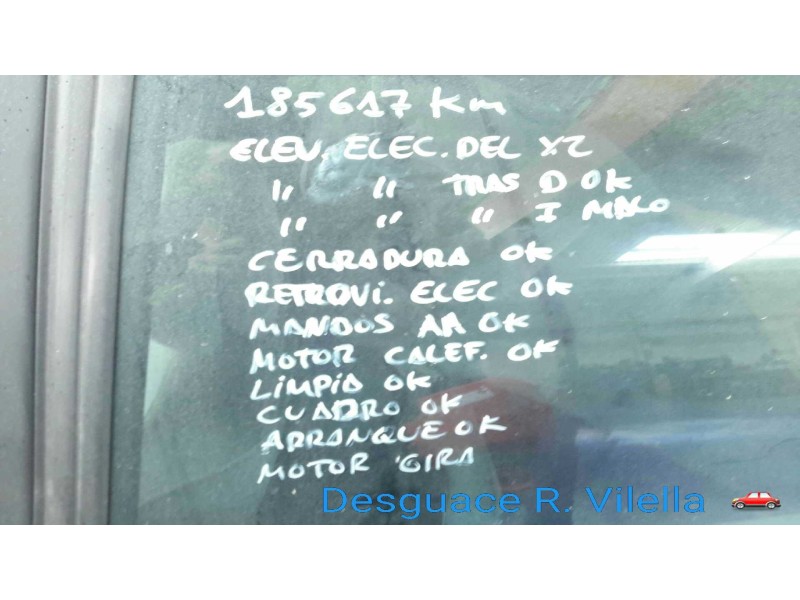 185617 Km
ELEV. ELEC. DEL X2
" " TRAS D OK
" " " I MALO
CERRADURA OK
RETROVI. ELEC OK
MANDOS AA OK
MOTOR CALEF. OK
LIMPIA OK
CUADRO OK
ARRANQUE OK
MOTOR GIRA
Desguace R. Vilella